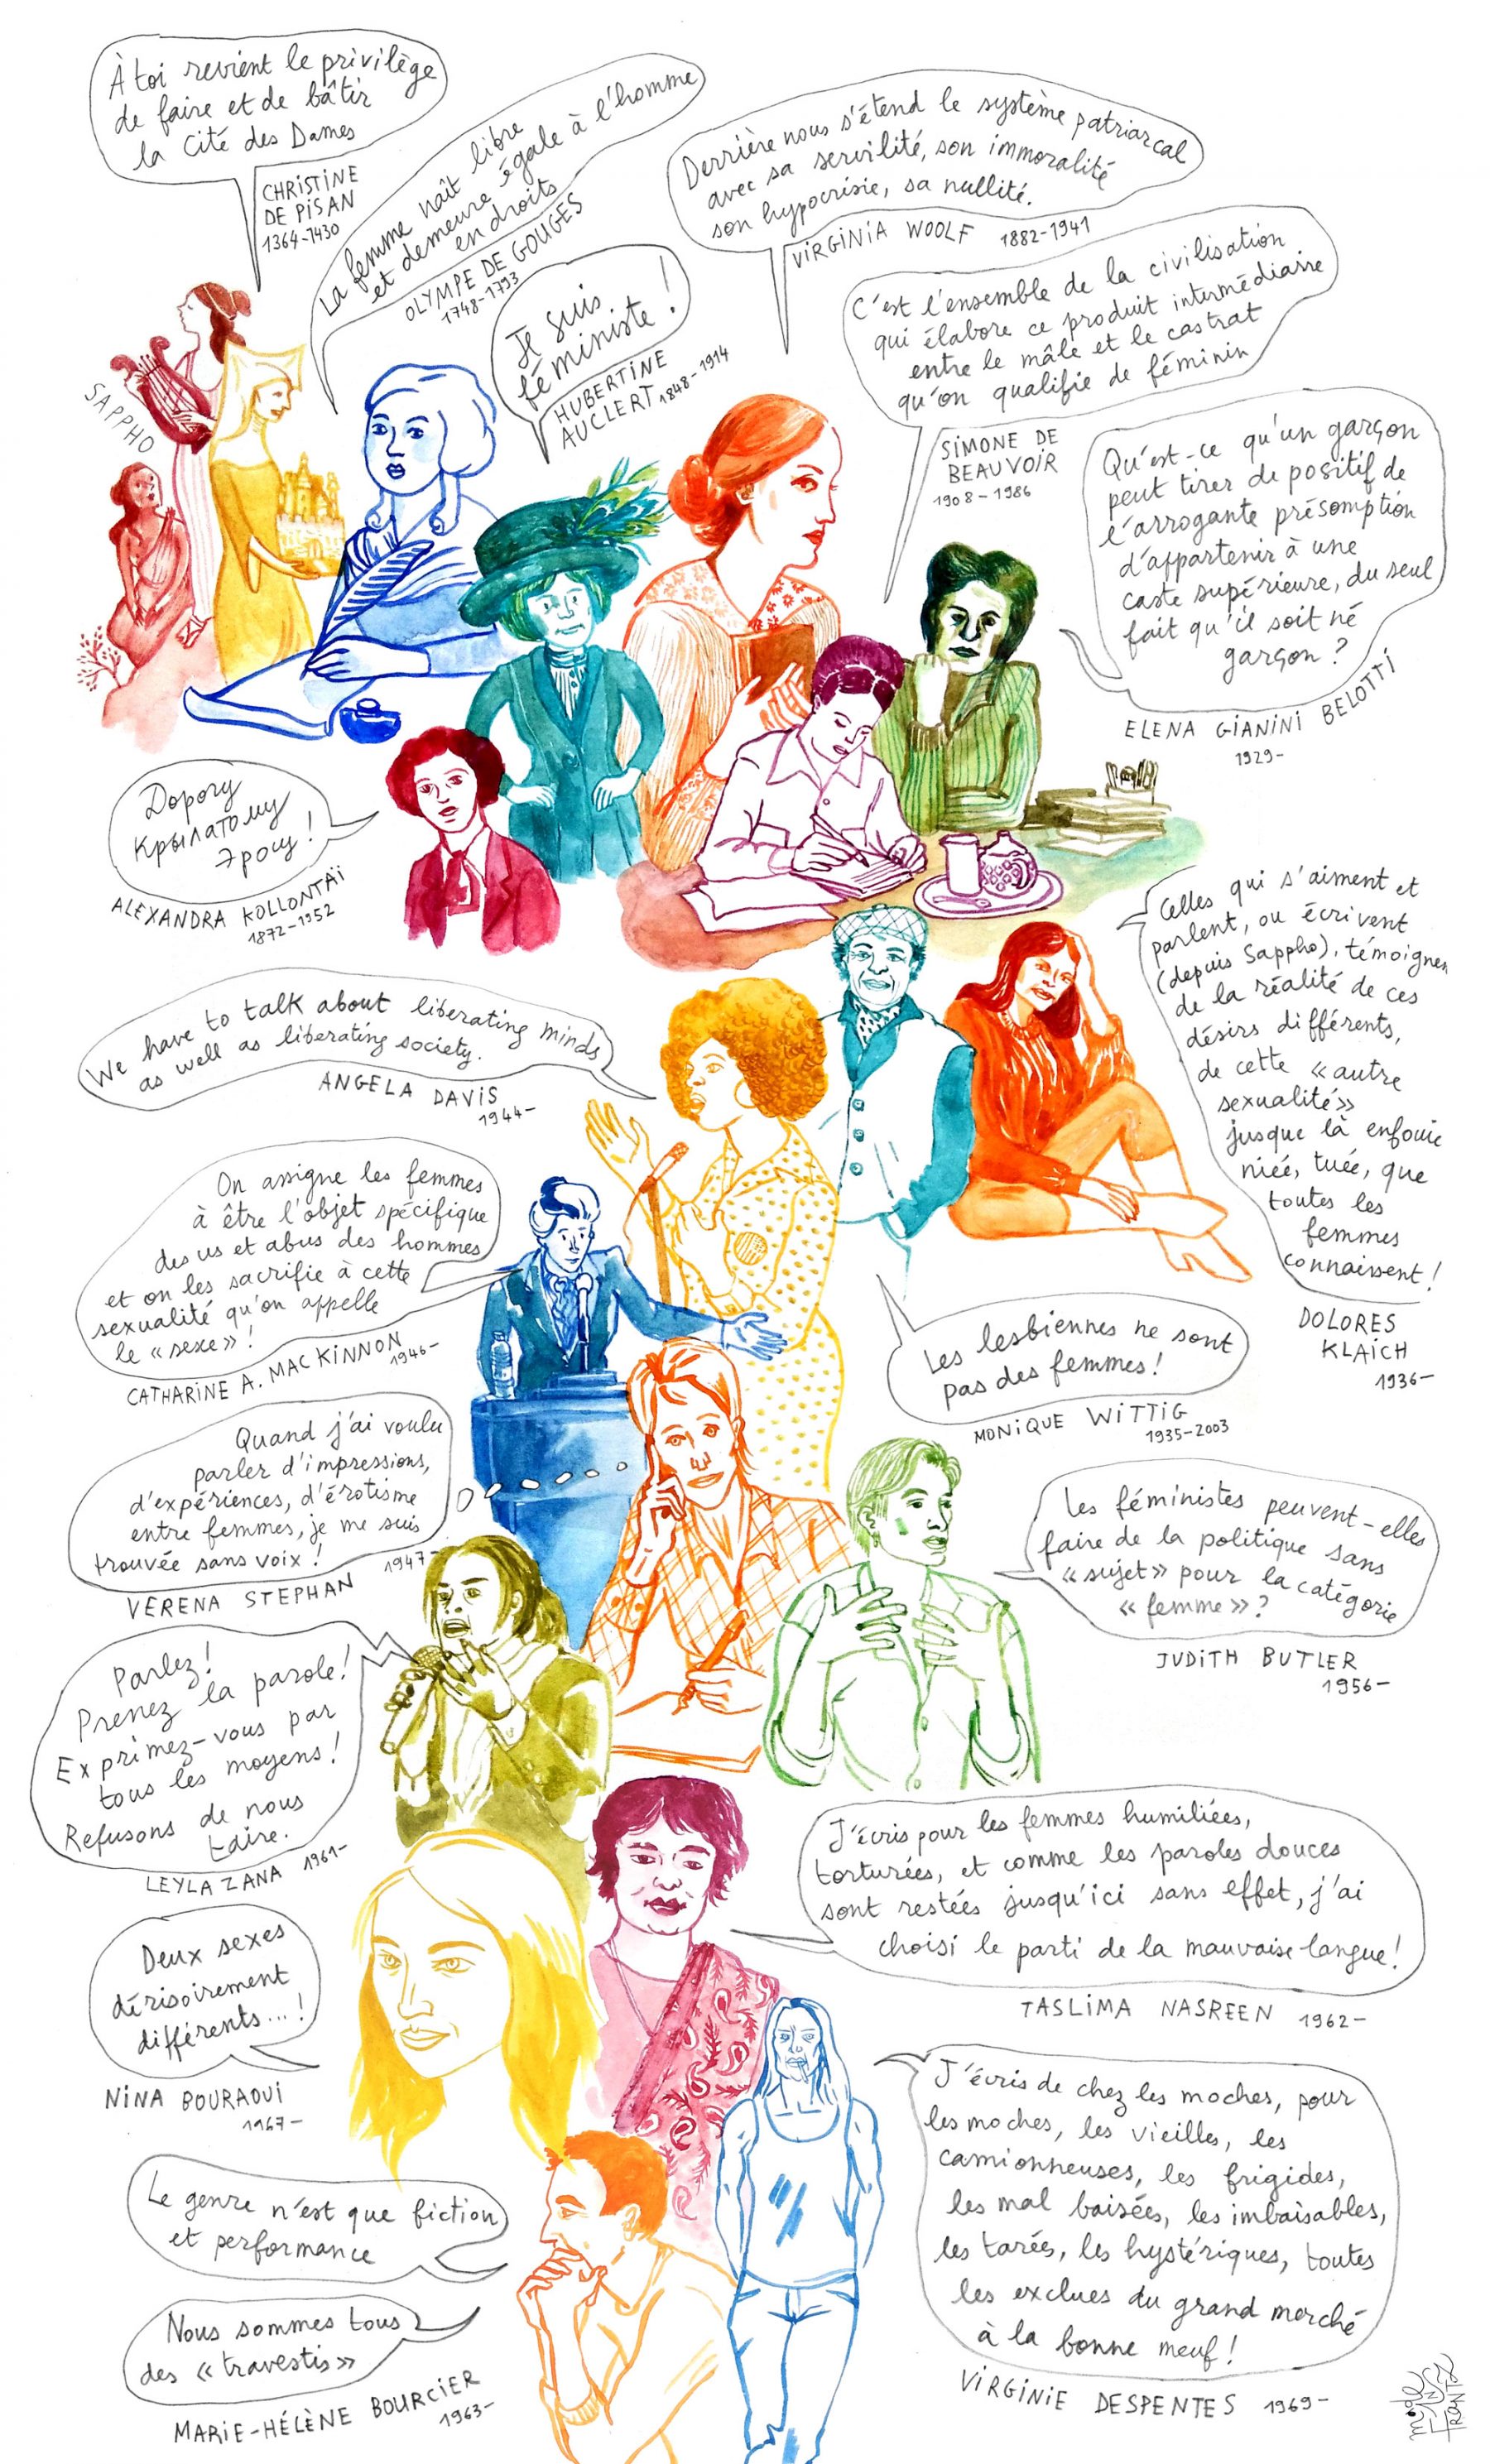 À toi revient le privilège
de faire et de bâtir
la Cité des Dames
CHRISTINE
DE PISAN
1364-1430
La femme naît libre
et demeure égale à l'homme
en droits
OLYMPE DE GOUGES
1748-1793
Derrière nous s'étend le système patriarcal
avec sa servilité, son immoralité
son hypocrisie, sa nullité.
VIRGINIA WOOLF 1882-1941
Je suis
féministe !
HUBERTINE
AUCLERT 1848-1914
C'est l'ensemble de la civilisation
qui élabore ce produit intermédiaire
entre le mâle et le castrat
qu'on qualifie de féminin
SIMONE DE
BEAUVOIR
1908-1986
SAPPHO
Qu'est-ce qu'un garçon
peut tirer de positif de
l'arrogante présomption
d'appartenir à une
caste supérieure, du seul
fait qu'il soit né
garçon ?
ELENA GIANINI BELOTTI
1929-
Дорогу
Крылатому
Эросу !
ALEXANDRA KOLLONTAÏ
1872-1952
Celles qui s'aiment et
parlent, ou écrivent
(depuis Sappho), témoignen
de la réalité de ces
désirs différents,
de cette « autre
sexualité »
jusque là enfouie
niée, tuée, que
toutes les
femmes
connaissent !
DOLORES
KLAICH
1936-
We have to talk about liberating minds
as well as liberating society.
ANGELA DAVIS
1944-
On assigne les femmes
à être l'objet spécifique
des us et abus des hommes
et on les sacrifie à cette
sexualité qu'on appelle
le « sexe » !
CATHARINE A. MACKINNON
1946-
Les lesbiennes ne sont
pas des femmes !
MONIQUE WITTIG
1935-2003
Quand j'ai voulu
parler d'impressions,
d'expériences, d'érotisme
entre femmes, je me suis
trouvée sans voix !
VERENA STEPHAN 1947-
Les féministes peuvent-elles
faire de la politique sans
« sujet » pour la catégorie
« femme » ?
JUDITH BUTLER
1956-
Parlez !
Prenez la parole !
Exprimez-vous par
tous les moyens !
Refusons de nous
taire.
LEYLA ZANA 1961-
J'écris pour les femmes humiliées,
torturées, et comme les paroles douces
sont restées jusqu'ici sans effet, j'ai
choisi le parti de la mauvaise langue !
TASLIMA NASREEN 1962-
Deux sexes
dérisoirement
différents...!
NINA BOURAOUI
1967-
J'écris de chez les moches, pour
les moches, les vieilles, les
camionneuses, les frigides,
les mal baisées, les imbaisables,
les tarées, les hystériques, toutes
les exclues du grand marché
à la bonne meuf !
VIRGINIE DESPENTES 1969-
Le genre n'est que fiction
et performance
Nous sommes tous
des « travestis »
MARIE-HÉLÈNE BOURCIER
1963-